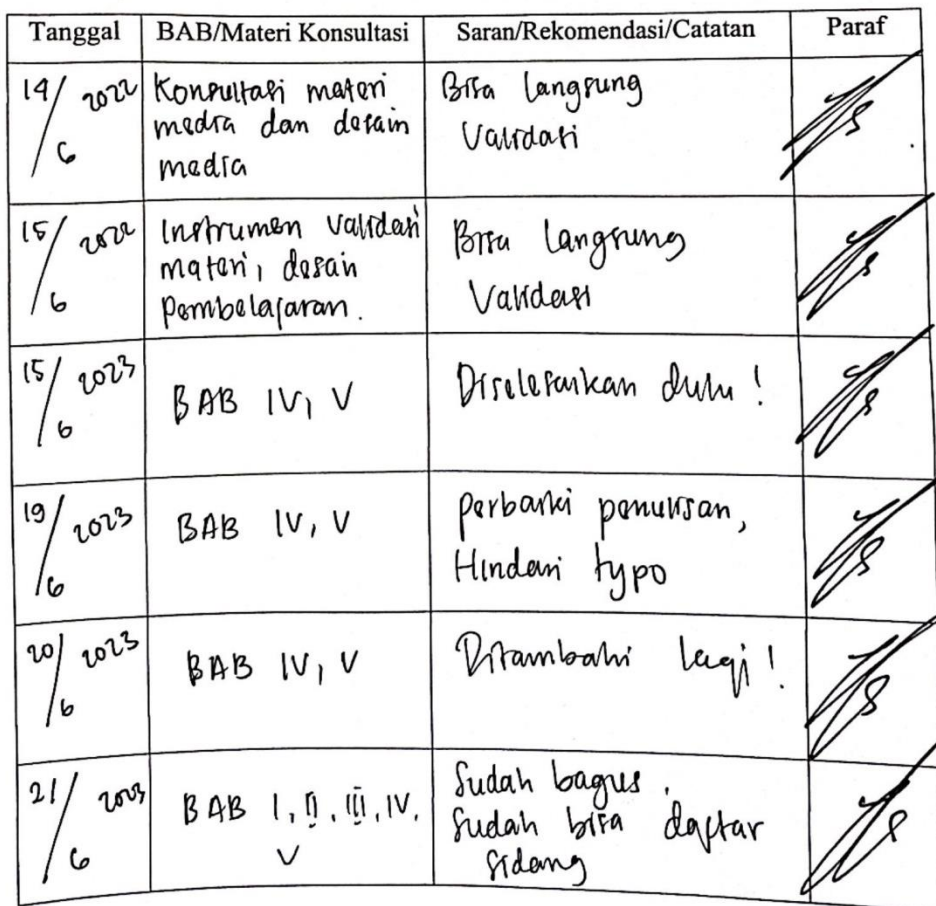 Tanggal BAB/Materi Konsultasi Saran/Rekomendasi/Catatan Paraf
14/6 2022 Konsultasi materi Bisa langsung
media dan desain Validasi
media
15/6 2022 Instrumen validasi Bisa langsung
materi, desain Validasi
Pembelajaran.
15/6 2023 BAB IV, V Diselesaikan dulu !
19/6 2023 BAB IV, V Perbaiki penulisan,
Hindari typo
20/6 2023 BAB IV, V Ditambahi lagi !
21/6 2023 BAB I, II, III, IV, Sudah bagus.
V Sudah bisa daftar
sidang